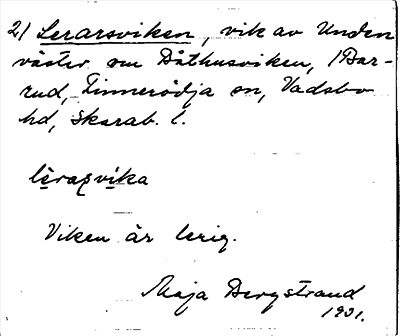 2) Lerarsviken, vik av Unden
väster om Båthusviken, /Bar-
rud, Tinnerödja sn, Vadsbo
hd, Skarab. l.
lèraʂvìka
Viken är lerig.
Maja Bergstrand
1931.